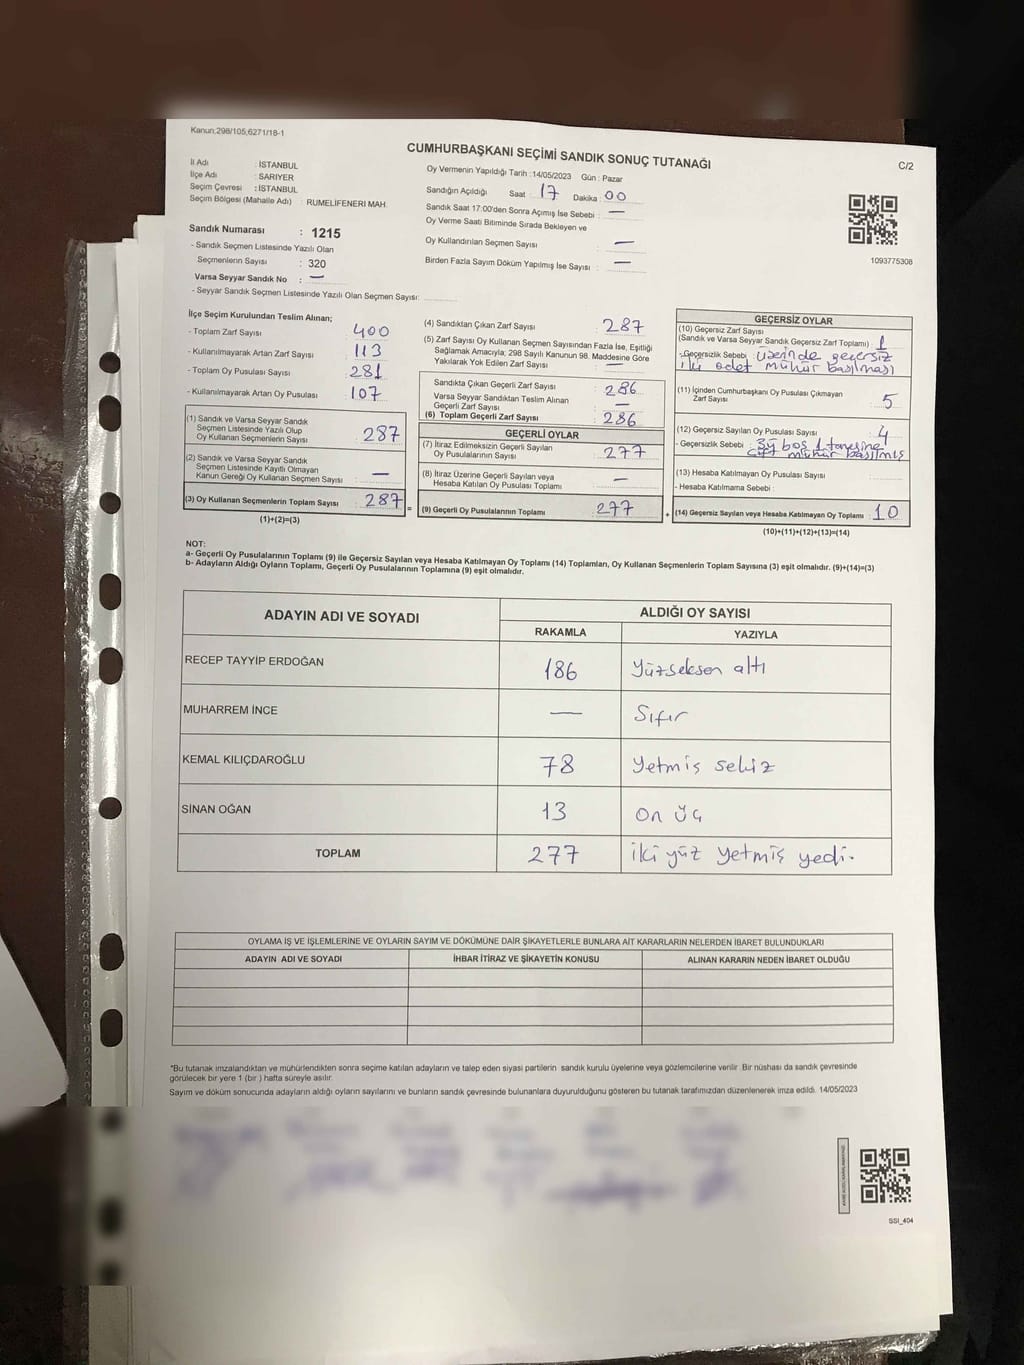 Kanun;298/105;6271/18-1
CUMHURBAŞKANI SEÇİMİ SANDIK SONUÇ TUTANAĞI
C/2
İl Adı : İSTANBUL
İlçe Adı : SARIYER
Seçim Çevresi : İSTANBUL
Seçim Bölgesi (Mahalle Adı) : RUMELİFENERİ MAH.
Oy Vermenin Yapıldığı Tarih :14/05/2023 Gün : Pazar
Sandığın Açıldığı Saat : 17 Dakika : 00
Sandık Saat 17:00'den Sonra Açımış İse Sebebi : —
Oy Verme Saati Bitiminde Sırada Bekleyen ve
Oy Kullandırılan Seçmen Sayısı : —
Birden Fazla Sayım Döküm Yapılmış İse Sayısı : —
1093775308
Sandık Numarası : 1215
- Sandık Seçmen Listesinde Yazılı Olan
Seçmenlerin Sayısı : 320
Varsa Seyyar Sandık No : —
- Seyyar Sandık Seçmen Listesinde Yazılı Olan Seçmen Sayısı:
İlçe Seçim Kurulundan Teslim Alınan;
- Toplam Zarf Sayısı : 400
- Kullanılmayarak Artan Zarf Sayısı : 113
- Toplam Oy Pusulası Sayısı : 281
- Kullanılmayarak Artan Oy Pusulası : 107
(1) Sandık ve Varsa Seyyar Sandık
Seçmen Listesinde Yazılı Olup
Oy Kullanan Seçmenlerin Sayısı : 287
(2) Sandık ve Varsa Seyyar Sandık
Seçmen Listesinde Kayıtlı Olmayan
Kanun Gereği Oy Kullanan Seçmen Sayısı : —
(3) Oy Kullanan Seçmenlerin Toplam Sayısı : 287 =
(1)+(2)=(3)
(4) Sandıktan Çıkan Zarf Sayısı : 287
(5) Zarf Sayısı Oy Kullanan Seçmen Sayısından Fazla İse, Eşitliği
Sağlamak Amacıyla; 298 Sayılı Kanunun 98. Maddesine Göre
Yakılarak Yok Edilen Zarf Sayısı : —
Sandıkta Çıkan Geçerli Zarf Sayısı : 286
Varsa Seyyar Sandıktan Teslim Alınan
Geçerli Zarf Sayısı : —
(6) Toplam Geçerli Zarf Sayısı : 286
GEÇERLİ OYLAR
(7) İtiraz Edilmeksizin Geçerli Sayılan
Oy Pusulalarının Sayısı : 277
(8) İtiraz Üzerine Geçerli Sayılan veya
Hesaba Katılan Oy Pusulası Toplamı : —
(9) Geçerli Oy Pusulalarının Toplamı : 277 +
GEÇERSİZ OYLAR
(10) Geçersiz Zarf Sayısı
(Sandık ve Varsa Seyyar Sandık Geçersiz Zarf Toplamı) : 1
- Geçersizlik Sebebi : üzerinde geçersiz
iki adet mühür basılması
(11) İçinden Cumhurbaşkanı Oy Pusulası Çıkmayan
Zarf Sayısı : 5
(12) Geçersiz Sayılan Oy Pusulası Sayısı : 4
- Geçersizlik Sebebi : 3ü boş 1 tanesine
çift mühür basılmış
(13) Hesaba Katılmayan Oy Pusulası Sayısı :
- Hesaba Katılmama Sebebi :
(14) Geçersiz Sayılan veya Hesaba Katılmayan Oy Toplamı : 10
(10)+(11)+(12)+(13)=(14)
NOT:
a- Geçerli Oy Pusulalarının Toplamı (9) ile Geçersiz Sayılan veya Hesaba Katılmayan Oy Toplamı (14) Toplamları, Oy Kullanan Seçmenlerin Toplam Sayısına (3) eşit olmalıdır. (9)+(14)=(3)
b- Adayların Aldığı Oyların Toplamı, Geçerli Oy Pusulalarının Toplamına (9) eşit olmalıdır.
ADAYIN ADI VE SOYADI
ALDIĞI OY SAYISI
RAKAMLA YAZIYLA
RECEP TAYYİP ERDOĞAN 186 Yüzseksen altı
MUHARREM İNCE — Sıfır
KEMAL KILIÇDAROĞLU 78 Yetmiş sekiz
SİNAN OĞAN 13 On üç
TOPLAM 277 iki yüz yetmiş yedi.
OYLAMA İŞ VE İŞLEMLERİNE VE OYLARIN SAYIM VE DÖKÜMÜNE DAİR ŞİKAYETLERLE BUNLARA AİT KARARLARIN NELERDEN İBARET BULUNDUKLARI
ADAYIN ADI VE SOYADI İHBAR İTİRAZ VE ŞİKAYETİN KONUSU ALINAN KARARIN NEDEN İBARET OLDUĞU
*Bu tutanak imzalandıktan ve mühürlendikten sonra seçime katılan adayların ve talep eden siyasi partilerin sandık kurulu üyelerine veya gözlemcilerine verilir. Bir nüshası da sandık çevresinde
görülecek bir yere 1 (bir ) hafta süreyle asılır.
Sayım ve döküm sonucunda adayların aldığı oyların sayılarını ve bunların sandık çevresinde bulunanlara duyurulduğunu gösteren bu tutanak tarafımızdan düzenlenerek imza edildi. 14/05/2023
SSI_404